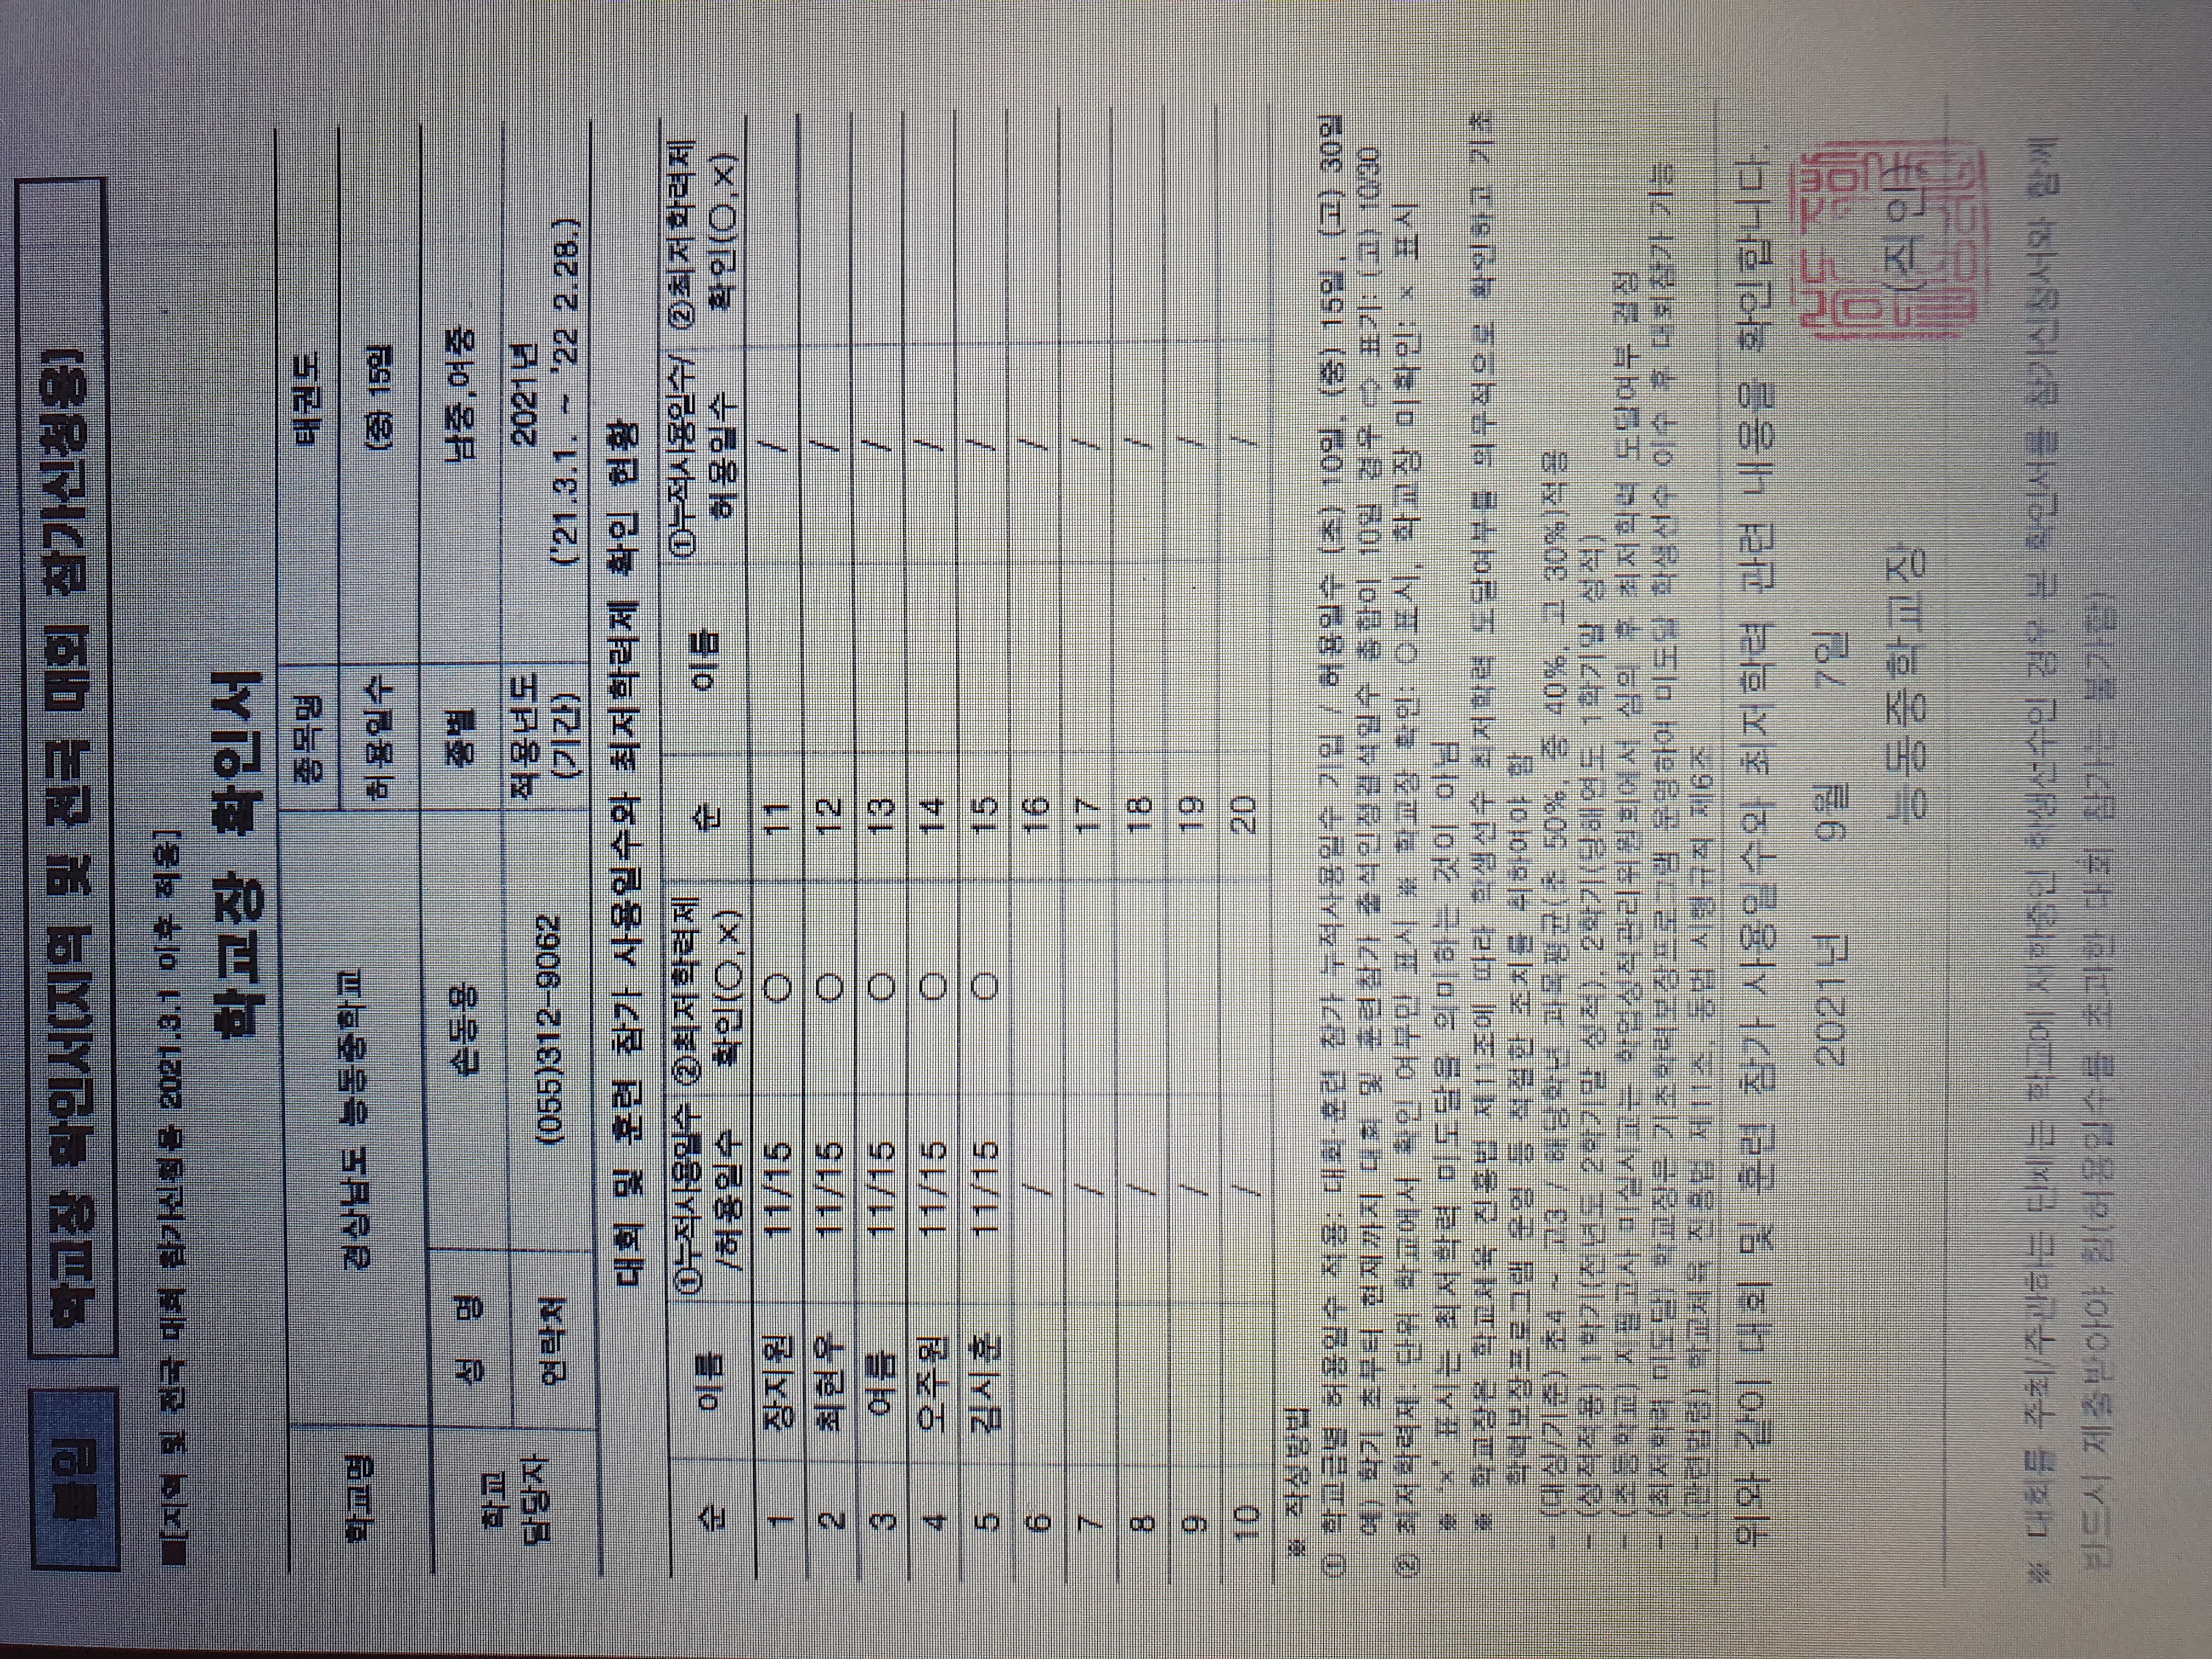 붙임 학교장 확인서(지역 및 전국 대회 참가신청용)
■[지역 및 전국 대회 참가신청용 2021.3.1 이후 적용]
학교장 확인서
학교명 경상남도 능동중학교 종목명 태권도
허용일수 (중) 15일
학교 담당자 성 명 손동용 종별 남중,여중
연락처 (055)312-9062 적용년도 (기간) 2021년 ('21.3.1. ~ '22 2.28.)
대회 및 훈련 참가 사용일수와 최저학력제 확인 현황
순 이름 ①누적사용일수 /허용일수 ②최저학력제 확인(○,×) 순 이름 ①누적사용일수/ 허용일수 ②최저학력제 확인(○,×)
1 장지원 11/15 ○ 11 /
2 최현우 11/15 ○ 12 /
3 여름 11/15 ○ 13 /
4 오주원 11/15 ○ 14 /
5 김시훈 11/15 ○ 15 /
6 / 16 /
7 / 17 /
8 / 18 /
9 / 19 /
10 / 20 /
※ 작성방법
① 학교급별 허용일수 적용: 대회 훈련 참가 누적사용일수 기입 / 허용일수 (초) 10일, (중) 15일, (고) 30일
예) 학기 초부터 현재까지 대회 및 훈련참가 출석인정결석일수 총합이 10일 경우 ⇨ 표기: (고) 10/30
② 최저학력제: 단위 학교에서 확인 여부만 표시 ※ 학교장 확인: ○표시, 학교장 미확인: × 표시
※ '×' 표시는 최저학력 미도달을 의미하는 것이 아님
※ 학교장은 학교체육 진흥법 제11조에 따라 학생선수 최저학력 도달여부를 의무적으로 확인하고 기초
학력보장프로그램 운영 등 적절한 조치를 취하여야 함
- (대상/기준) 초4 ~ 고3 / 해당학년 과목평균(초 50%, 중 40%, 고 30%)적용
- (성적적용) 1학기(전년도 2학기말 성적), 2학기(당해연도 1학기말 성적)
- (초등학교) 지필고사 미실시교는 학업성적관리위원회에서 심의 후 최저학력 도달여부 결정
- (최저학력 미도달) 학교장은 기초학력보장프로그램 운영하여 미도달 학생선수 이수 후 대회참가 가능
- (관련법령) 학교체육 진흥법 제11조, 동법 시행규칙 제6조
위와 같이 대회 및 훈련 참가 사용일수와 최저학력 관련 내용을 확인합니다.
2021년 9월 7일
능동중학교장 (직인)
※ 대회를 주최/주관하는 단체는 학교에 재학중인 학생선수인 경우 본 확인서를 참가신청서와 함께
반드시 제출받아야 함(허용일수를 초과한 대회 참가는 불가함)